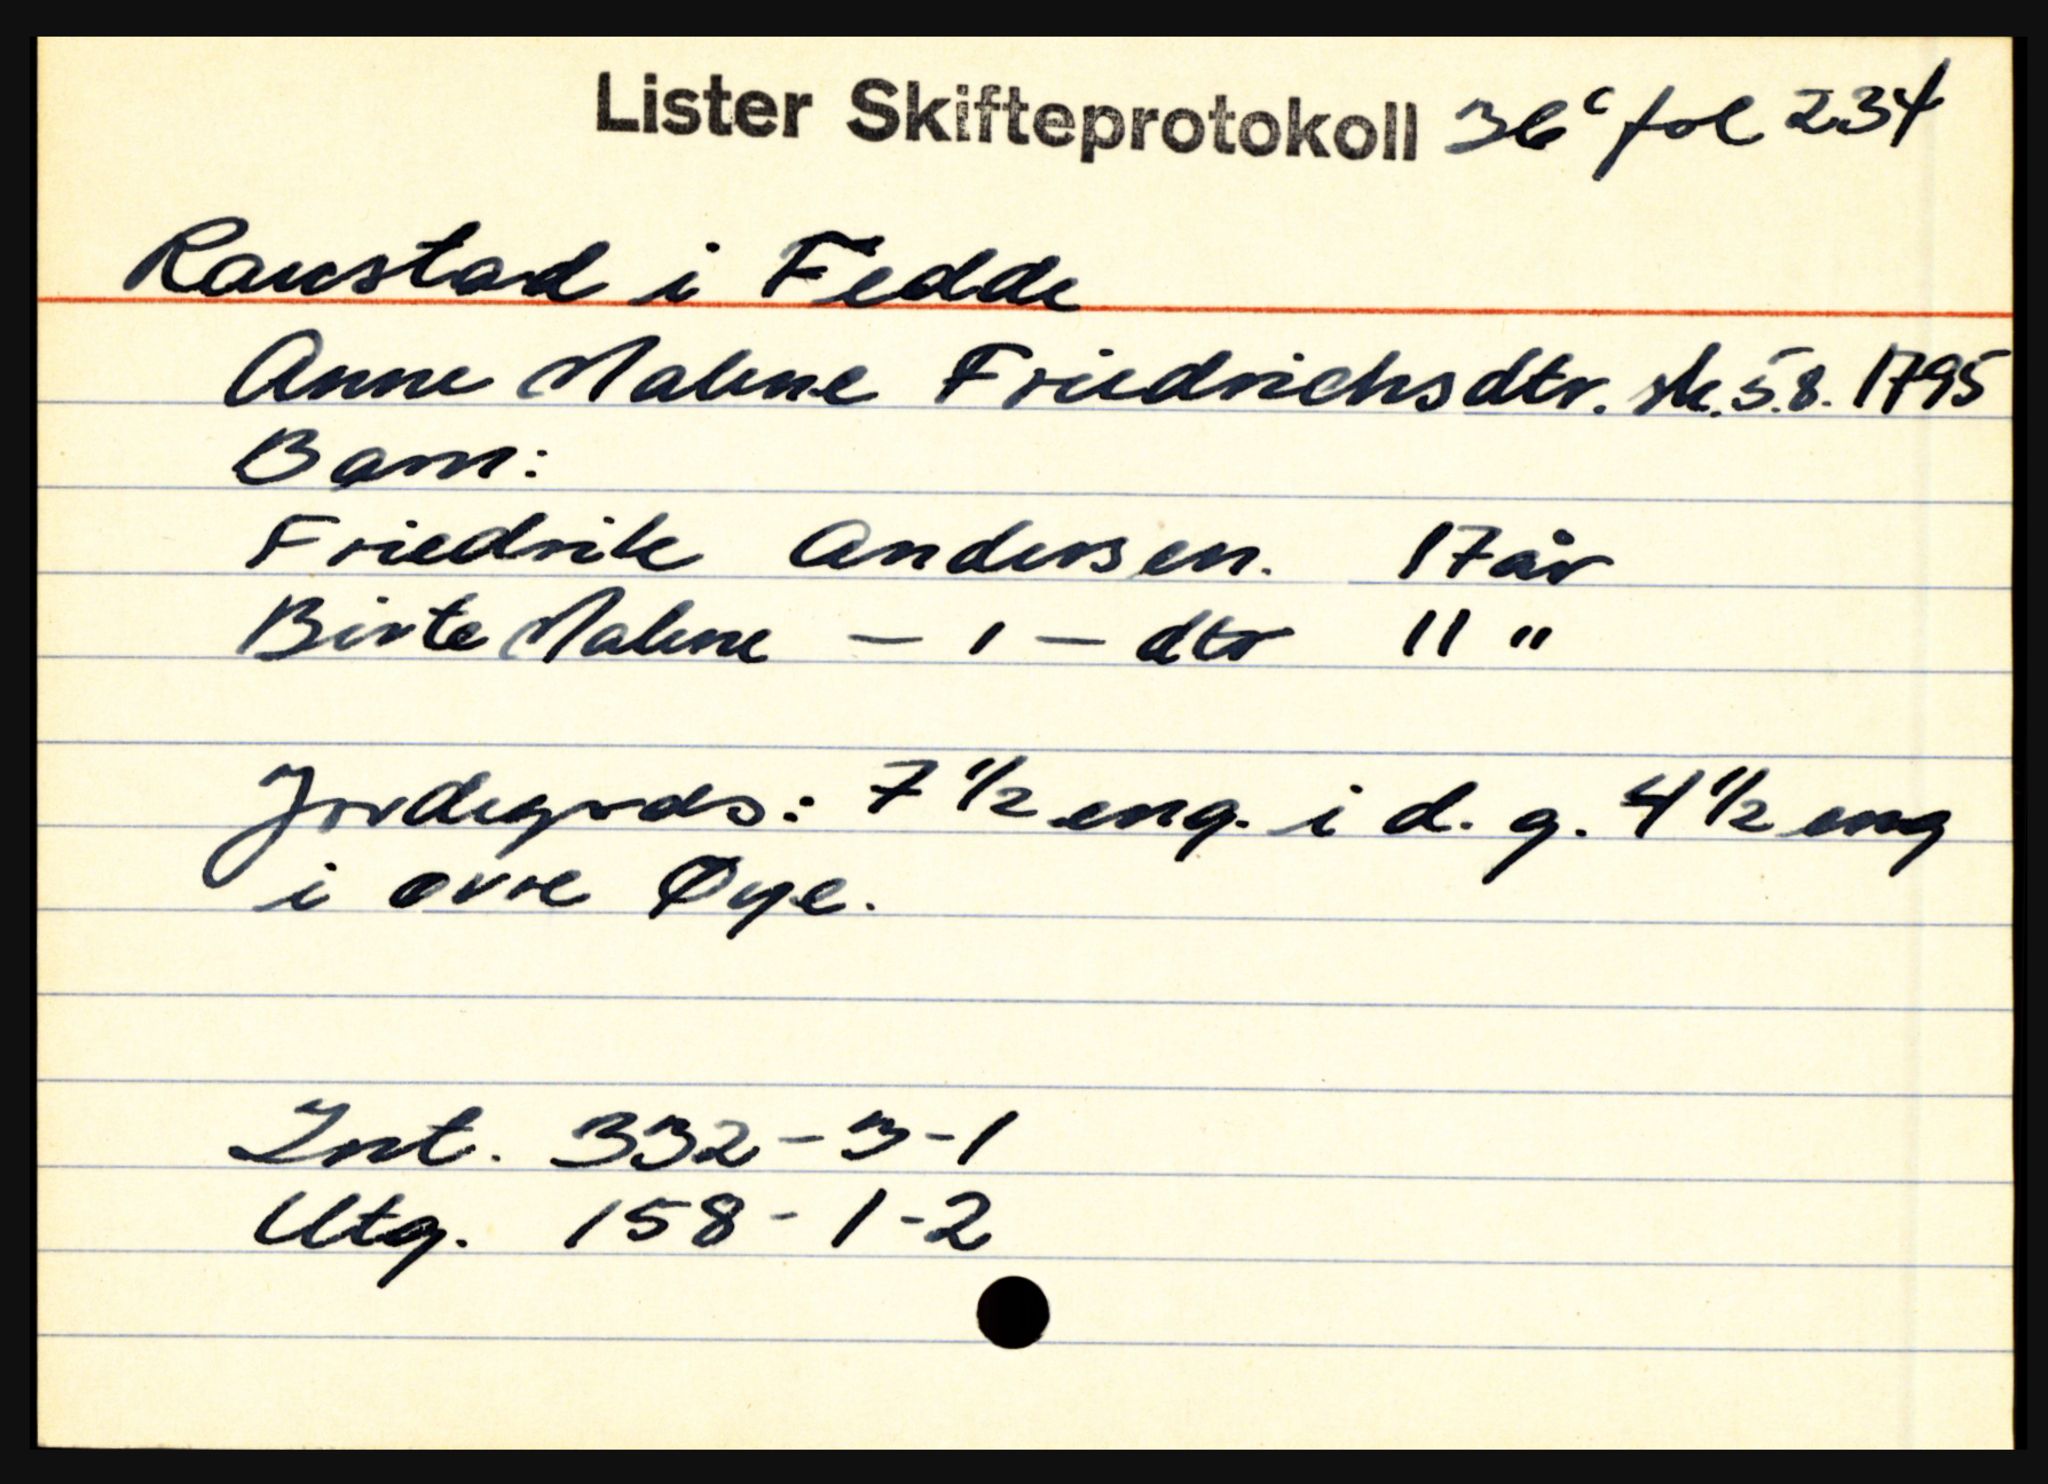 Lister Skifteprotokoll 36c fol 234
Raustad i Fedde
Anne Malene Friedrichsdtr. sk. 5.8. 1795
Barn:
Friedrik Andersen. 17 år
Birte Malene — ı — dtr 11 "
Jordegods: 7 1/2 eng. i d. g. 4 1/2 eng
i øvre Øye.
Int. 332-3-1
Utg. 158-1-2